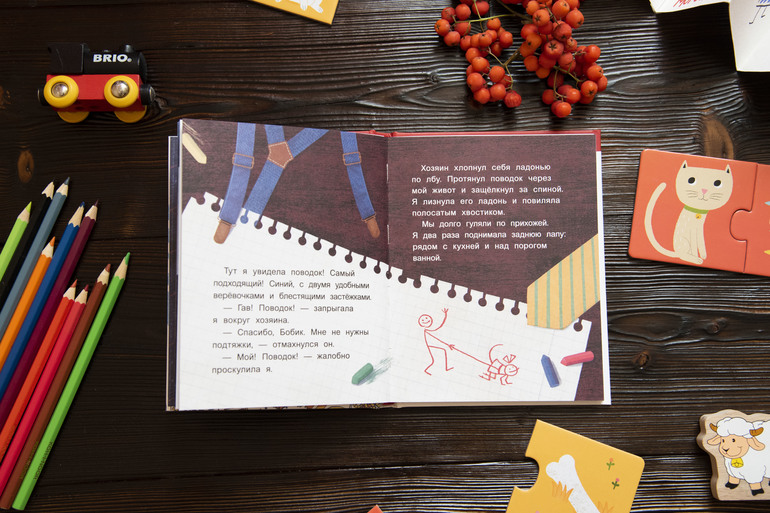 BRIO®
Тут я увидела поводок! Самый
подходящий! Синий, с двумя удобными
верёвочками и блестящими застёжками.
— Гав! Поводок! — запрыгала
я вокруг хозяина.
— Спасибо, Бобик. Мне не нужны
подтяжки, — отмахнулся он.
— Мой! Поводок! — жалобно
проскулила я.
Хозяин хлопнул себя ладонью
по лбу. Протянул поводок через
мой живот и защёлкнул за спиной.
Я лизнула его ладонь и повиляла
полосатым хвостиком.
Мы долго гуляли по прихожей.
Я два раза поднимала заднюю лапу:
рядом с кухней и над порогом
ванной.